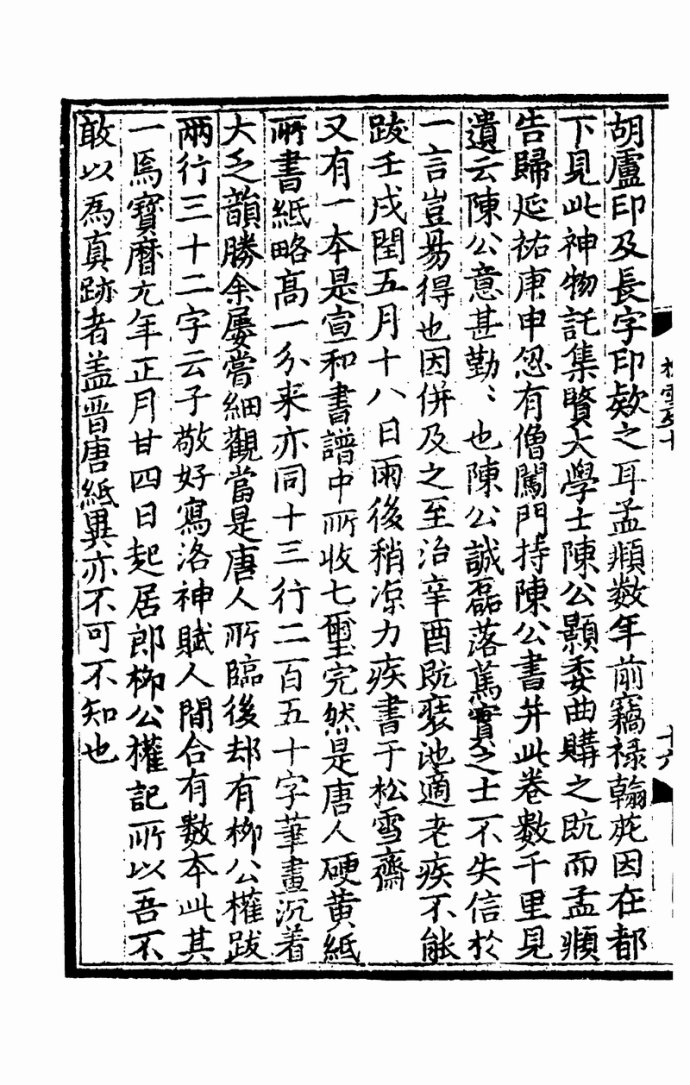 胡盧印及長字印欵之耳孟頫数年前竊祿翰苑因在都
下見此神物託集賢大學士陳公顥委曲購之旣而孟頫
告歸延祐庚申忽有僧闖門持陳公書并此卷數千里見
遺云陳公意甚勤〻也陳公誠磊落篤實之士不失信於
一言豈易得也因併及之至治辛酉旣裝池適老疾不能
跋壬戌閏五月十八日雨後稍凉力疾書于松雪齋
又有一本是宣和書譜中所收七璽完然是唐人硬黄紙
所書紙略高一分来亦同十三行二百五十字筆畫沉着
大乏韻勝余屢嘗細觀當是唐人所臨後却有栁公權跋
兩行三十二字云子敬好寫洛神賦人間合有數本此其
一焉寶曆元年正月廿四日起居郎栁公權記所以吾不
敢以爲真跡者盖晋唐紙異亦不可不知也
十六